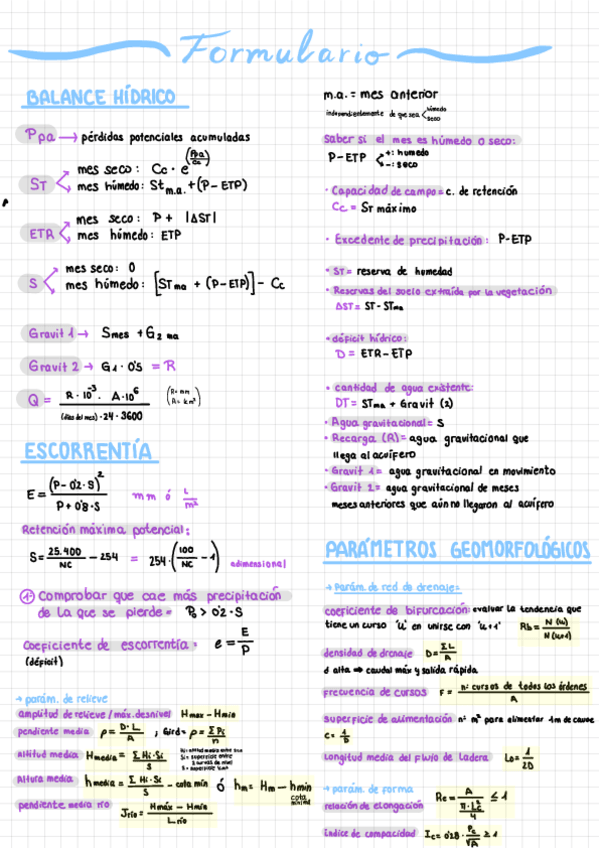 Formulario
BALANCE HÍDRICO
Ppa → pérdidas potenciales acumuladas
ST
mes seco: Cc · e^(Ppa/Cc)
mes húmedo: STm.a. + (P-ETP)
ETR
mes seco: P + |ΔST|
mes húmedo: ETP
S
mes seco: 0
mes húmedo: [STma + (P-ETP)] - Cc
Gravit 1 → Smes + G2 ma
Gravit 2 → G1 · 0'5 = R
Q = R · 10^-3 · A · 10^6 / (días del mes) · 24 · 3600
(R = mm
A = km²)
ESCORRENTÍA
E = (P - 0'2 · S)² / P + 0'8 · S mm ó L/m²
Retención máxima potencial:
S = 25.400/NC - 254 = 254 · (100/NC - 1) adimensional
1º Comprobar que cae más precipitación
de la que se pierde = P0 > 0'2 · S
Coeficiente de escorrentía: e = E/P
(déficit)
→ parám. de relieve
amplitud de relieve / máx. desnivel Hmax - Hmin
pendiente media ρ = D · L / A ; Gird = ρ = Σ Pi / n
altitud media Hmedia = Σ Hi · Si / S
Altura media hmedia = Σ Hi · Si / S - cota mín ó hm = Hm - hmin
cota mínima
pendiente media río Jrío = Hmáx - Hmin / Lrío
m.a. = mes anterior
independientemente de que sea húmedo
seco
Saber si el mes es húmedo o seco:
P-ETP
+: humedo
-: seco
· Capacidad de campo = c. de retención
Cc = ST máximo
· Excedente de precipitación: P-ETP
· ST = reserva de humedad
· Reservas del suelo extraída por la vegetación
ΔST = ST - STma
· déficit hídrico:
D = ETR - ETP
· cantidad de agua existente:
DT = STma + Gravit (2)
· Agua gravitacional = S
· Recarga (R) = agua gravitacional que
llega al acuífero
· Gravit 1 = agua gravitacional en movimiento
· Gravit 2 = agua gravitacional de meses
meses anteriores que aún no llegaron al acuífero
PARÁMETROS GEOMORFOLÓGICOS
→ Parám. de red de drenaje:
coeficiente de bifurcación: evaluar la tendencia que
tiene un curso 'u' en unirse con 'u+1' Rb = N(u) / N(u+1)
densidad de drenaje D = ΣL / A
d alta ⇒ caudal máx y salida rápida
frecuencia de cursos F = nº cursos de todos los órdenes / A
superficie de alimentación nº m² para alimentar 1m de cauce
C = 1/D
Longitud media del flujo de ladera Lo = 1/2D
→ parám. de forma
relación de elongación Re = A / (π · Lc² / 4) ≤ 1
índice de compacidad Ic = 0'28 · Pc / √A ≥ 1